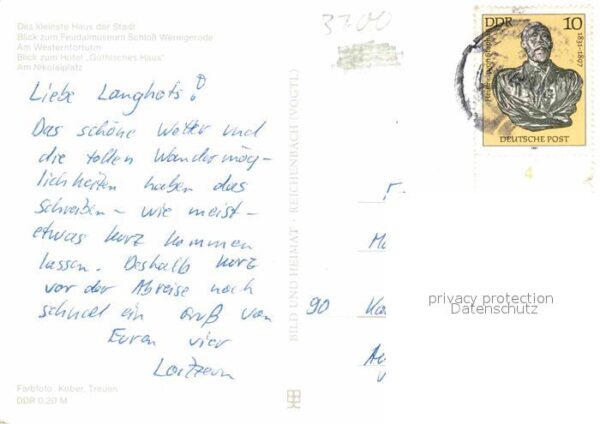 Das Kleinste Haus der Stadt
Blick zum Feudalmuseum Schloß Wernigerode
Am Westerntorturm
Blick zum Hotel „Gothisches Haus"
Am Nikolaiplatz
37.00
Liebe Langhofs!
Das schöne Wetter und
die tollen Wandermög-
lichkeiten haben das
Schreiben – wie meist –
etwas kurz kommen
lassen. Deshalb kurz
vor der Abreise noch
schnell ein Gruß von
Euren vier
Farbfoto: Kober, Treuen
DDR 0,20 M
BILD UND HEIMAT · REICHENBACH (VOGTL)
DDR 10
1831-1897
DEUTSCHE POST
4
90
privacy protection
Datenschutz